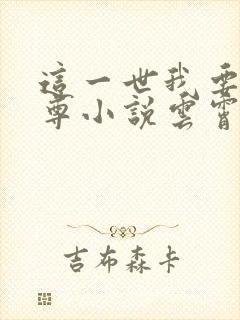 這一世我要
尊小說雲霄
吉布森卡